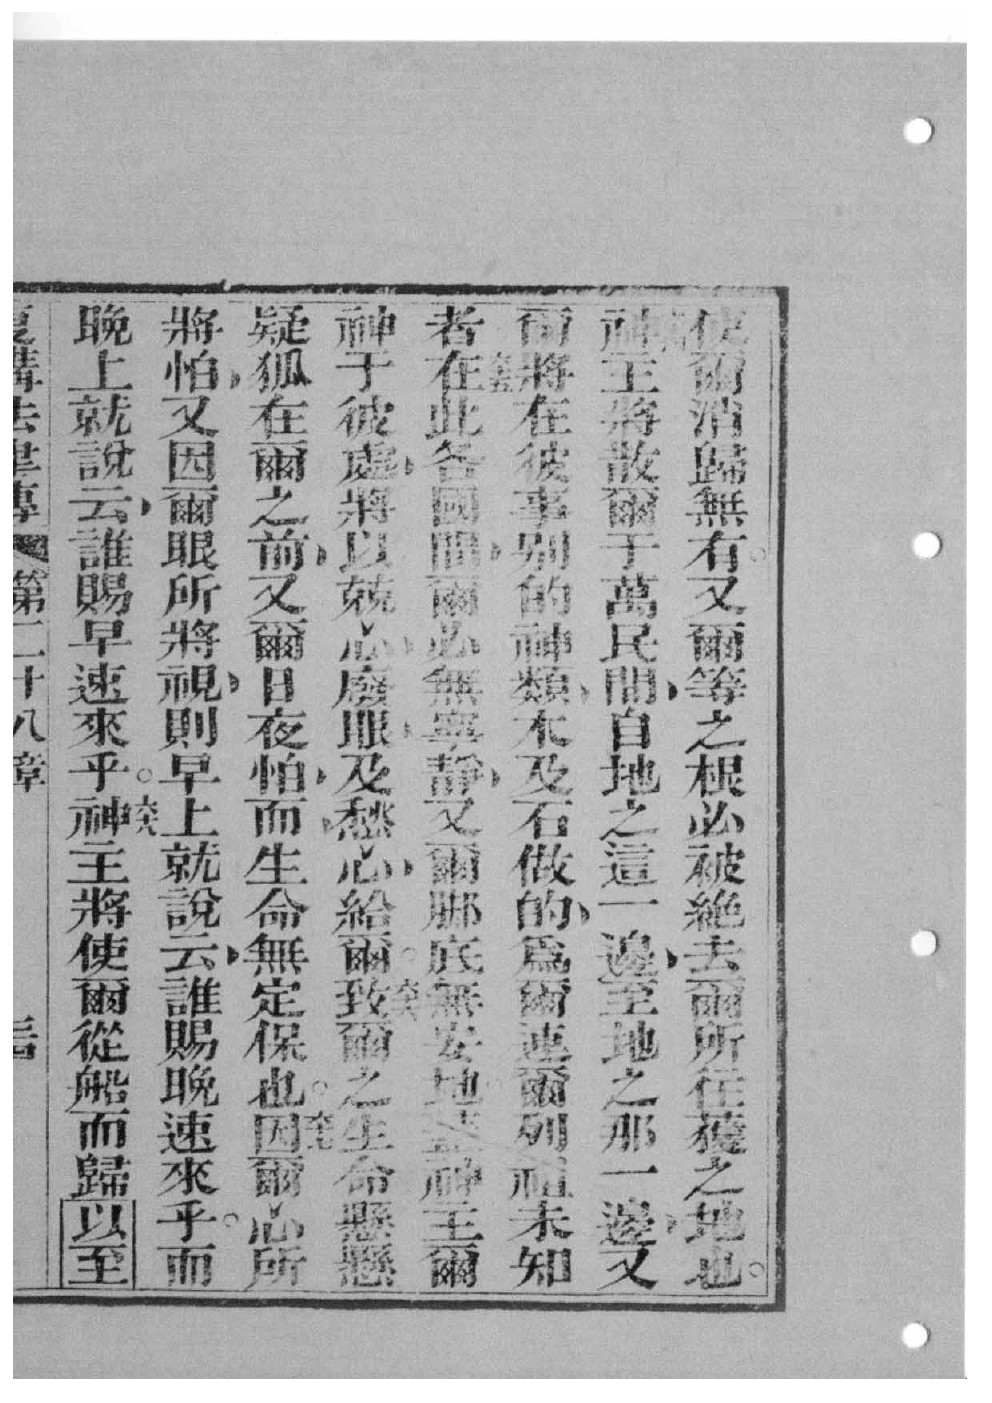 使爾消歸無有。又爾等之根必被絕去爾所往獲之地也。
神主將散爾于萬民間、自地之這一邊、至地之那一邊、又
爾將在彼事別的神類、木及石做的、爲爾連爾列祖未知
者在此各國間、爾必無寧靜、又爾脚底無安地。蓋神主爾
神于彼處、將以兢心、廢眼、及愁心、給爾。致爾之生命懸懸、
疑狐在爾之前、又爾日夜怕、而生命無定保也。因爾心所
將怕、又因爾眼所將視、則早上就說云、誰賜晚速來乎。而
晚上就說云、誰賜早速來乎。神主將使爾從船而歸以至
復講法律傳 第二十八章